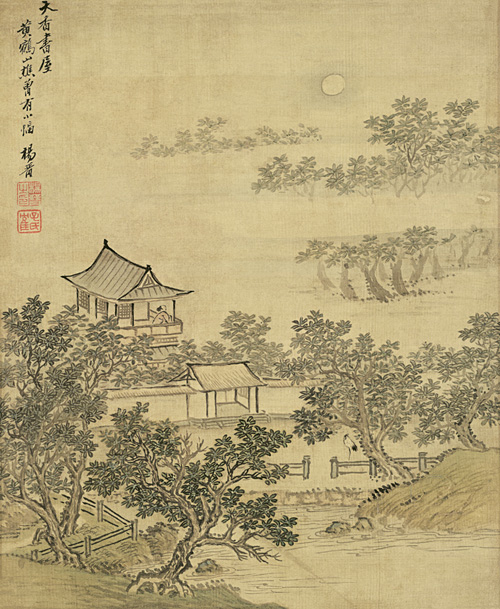 天香書屋
黃鶴山樵曾有小幅 楊晉